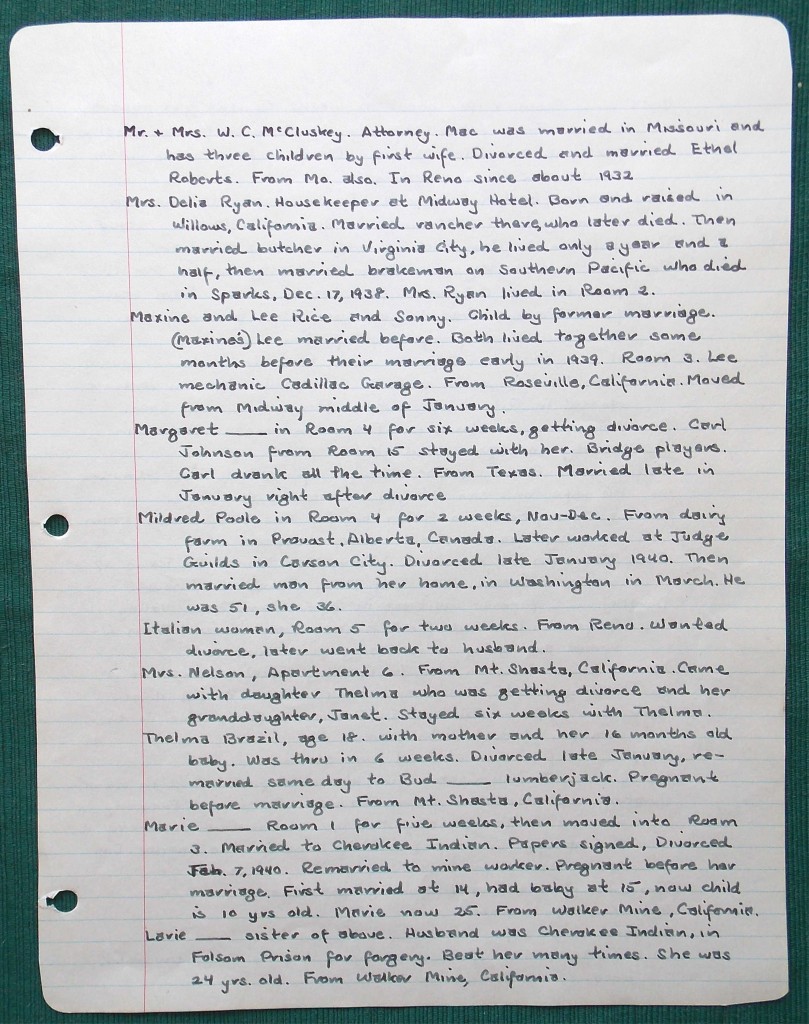 Mr. + Mrs. W. C. McCluskey. Attorney. Mac was married in Missouri and
has three children by first wife. Divorced and married Ethel
Roberts. From Mo. also. In Reno since about 1932
Mrs. Delia Ryan. Housekeeper at Midway Hotel. Born and raised in
Willows, California. Married rancher there, who later died. Then
married butcher in Virginia City, he lived only a year and a
half, then married brakeman on Southern Pacific who died
in Sparks, Dec. 17, 1938. Mrs. Ryan lived in Room 2.
Maxine and Lee Rice and Sonny. Child by former marriage.
(Maxine's) Lee married before. Both lived together some
months before their marriage early in 1939. Room 3. Lee
mechanic Cadillac Garage. From Roseville, California. Moved
from Midway middle of January.
Margaret ____ in Room 4 for six weeks, getting divorce. Carl
Johnson from Room 15 stayed with her. Bridge players.
Carl drank all the time. From Texas. Married late in
January right after divorce
Mildred Poole in Room 4 for 2 weeks, Nov-Dec. From dairy
farm in Provost, Alberta, Canada. Later worked at Judge
Guilds in Carson City. Divorced late January 1940. Then
married man from her home, in Washington in March. He
was 51, she 36.
Italian woman, Room 5 for two weeks. From Reno. Wanted
divorce, later went back to husband.
Mrs. Nelson, Apartment 6. From Mt. Shasta, California. Came
with daughter Thelma who was getting divorce and her
granddaughter, Janet. Stayed six weeks with Thelma.
Thelma Brazil, age 18. with mother and her 16 months old
baby. Was thru in 6 weeks. Divorced late January, re-
married same day to Bud ____ lumberjack. Pregnant
before marriage. From Mt. Shasta, California.
Marie ____ Room 1 for five weeks, then moved into Room
3. Married to Cherokee Indian. Papers signed, Divorced
Feb. 7, 1940. Remarried to mine worker. Pregnant before her
marriage. First married at 14, had baby at 15, now child
is 10 yrs old. Marie now 25. From Walker Mine, California.
Lavie ____ sister of above. Husband was Cherokee Indian, in
Folsom Prison for forgery. Beat her many times. She was
24 yrs. old. From Walker Mine, California.